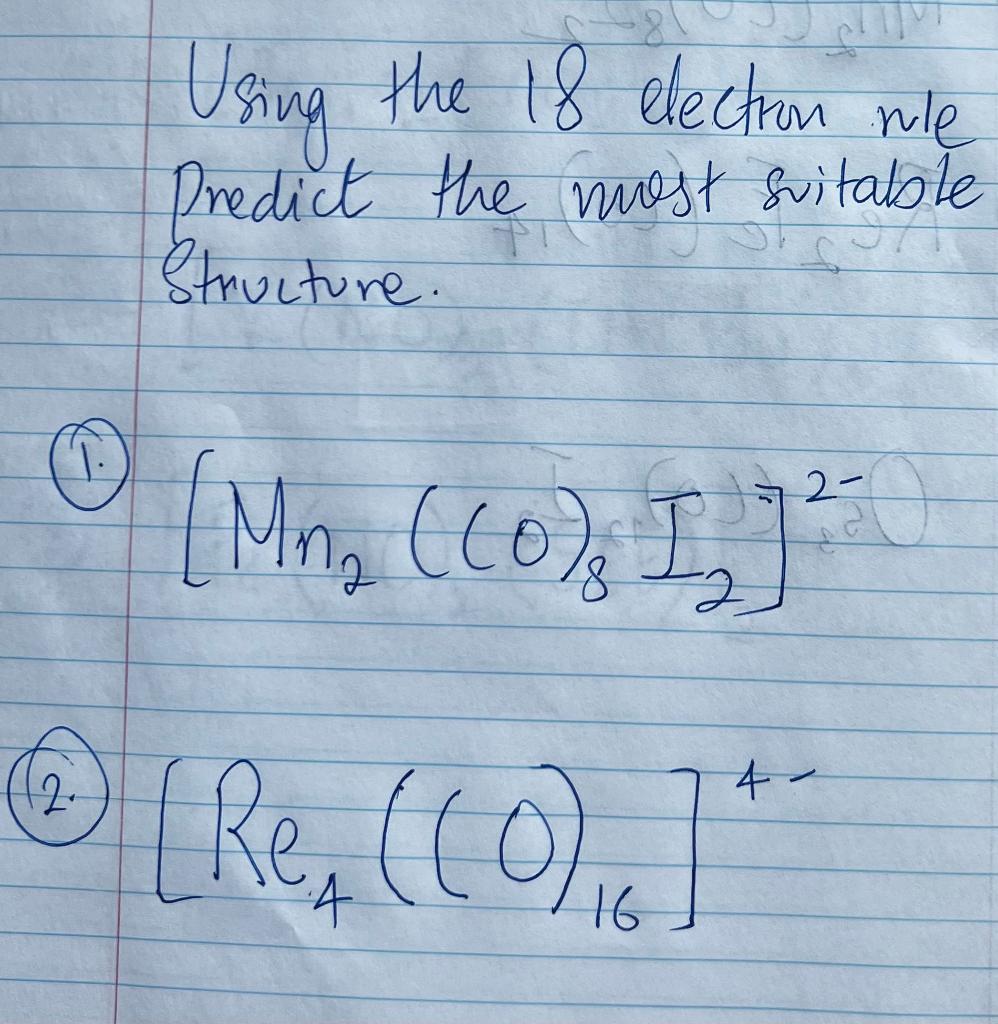 Using the 18 electron rule
Predict the most suitable
Structure.
1. [Mn₂ (CO)₈ I₂]²⁻
2. [Re₄ (CO)₁₆]⁴⁻